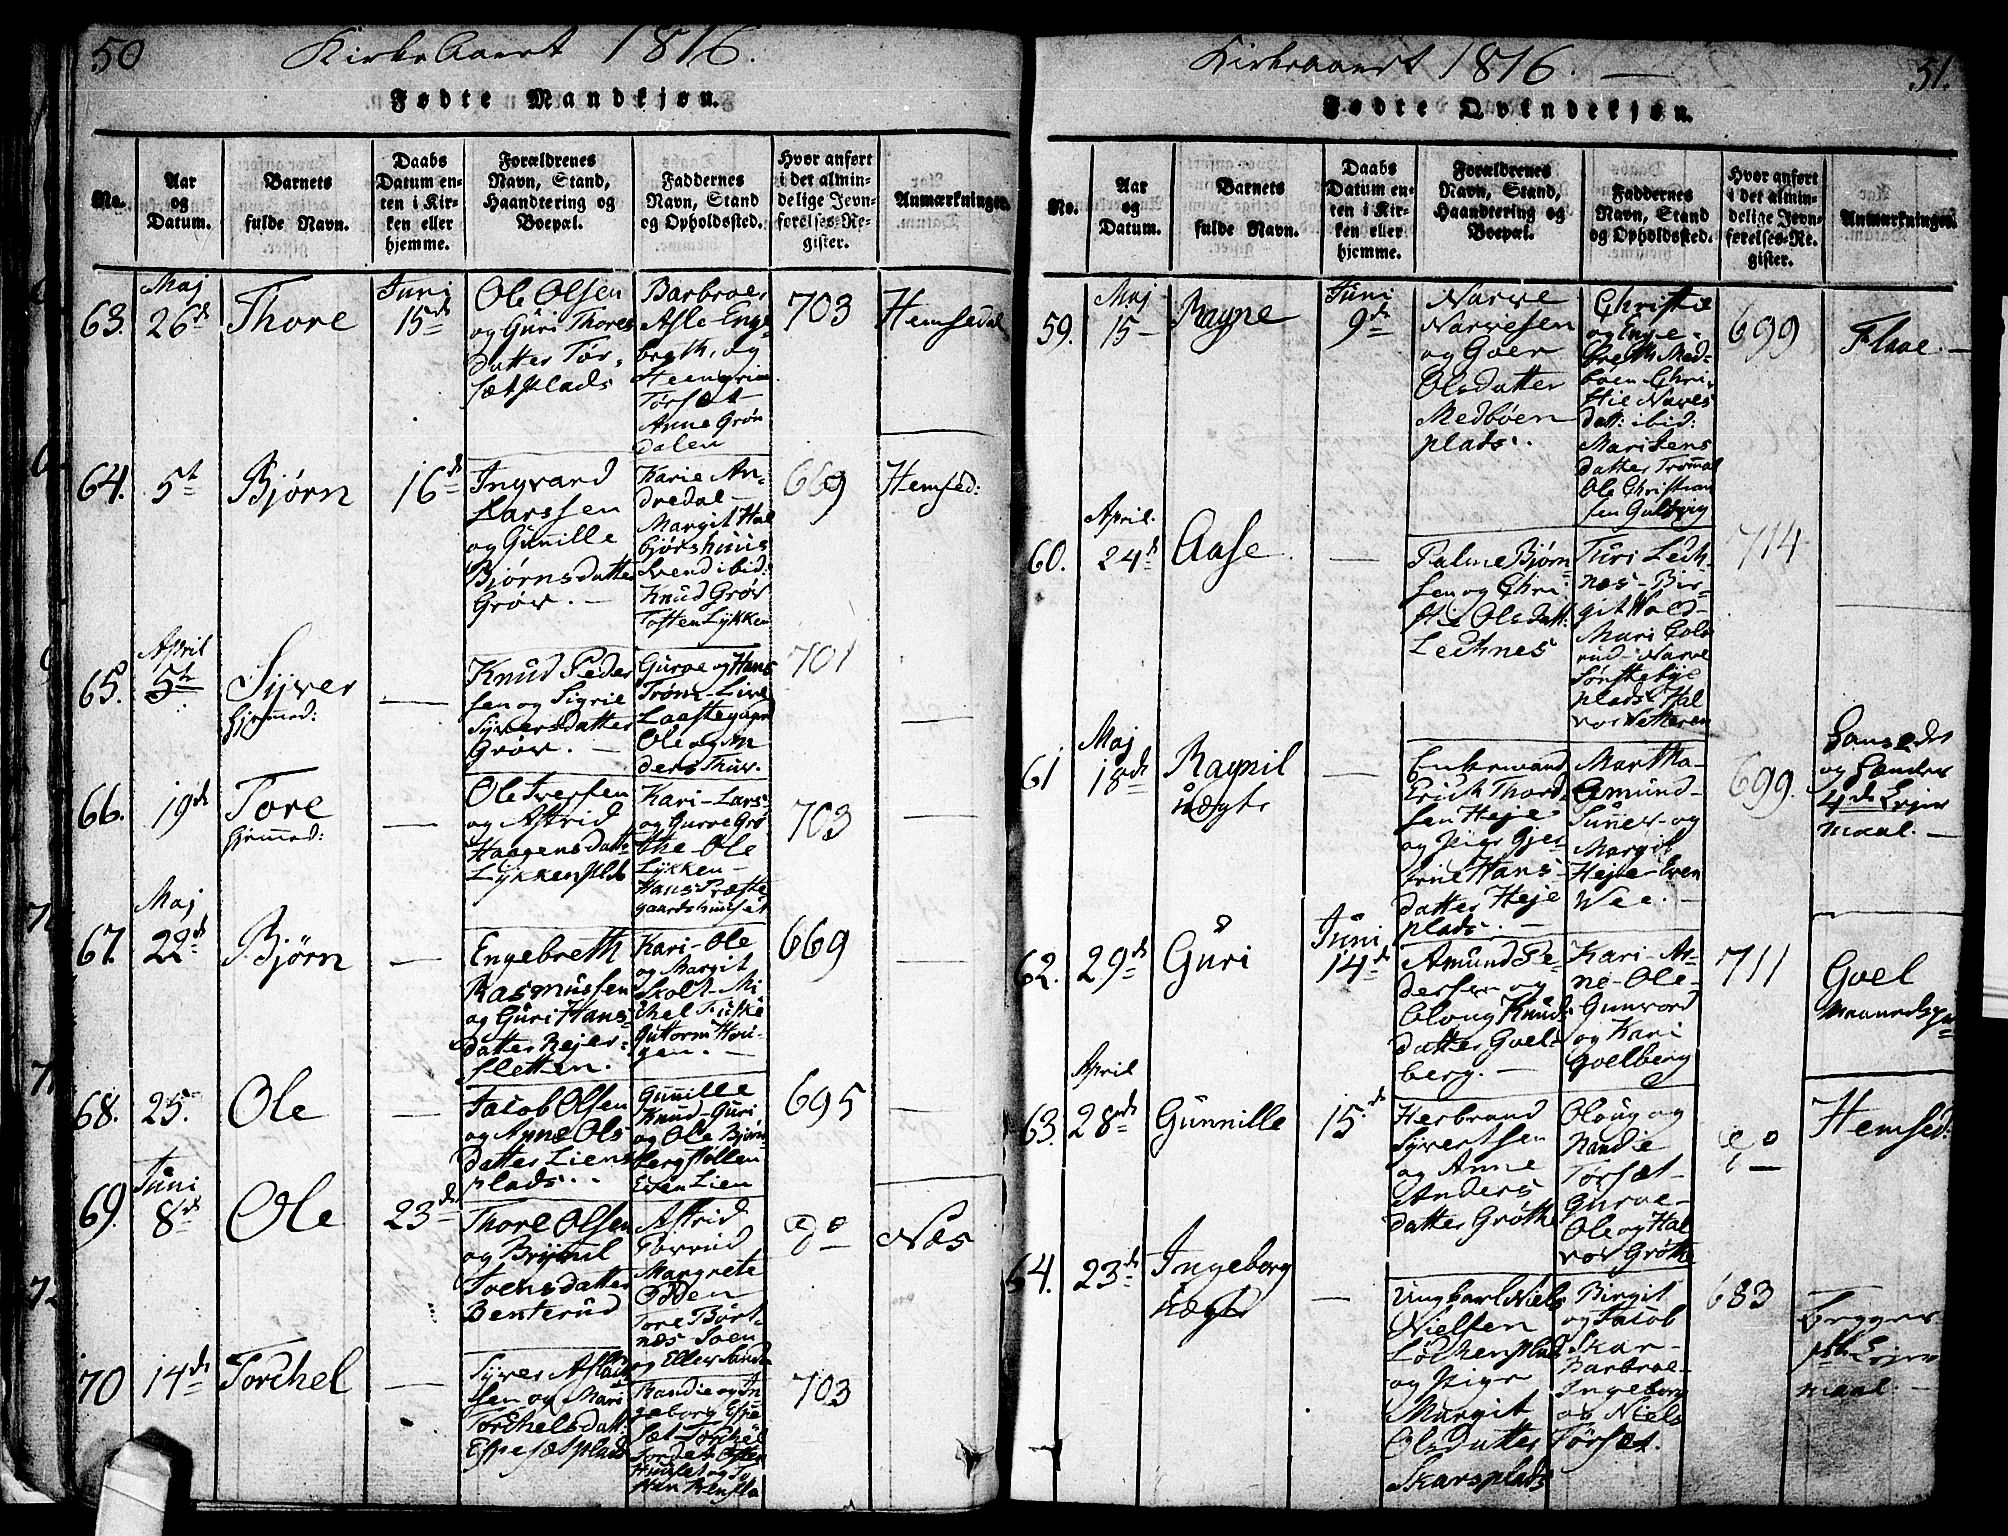 50
Kirkeaaret 1816.
Fødte Mandkjøn.
No.
Aar
og
Datum.
Barnets
fulde Navn.
Daabs
Datum en-
ten i Kir-
ken eller
hjemme.
Forældrenes
Navn, Stand,
Haandtering og
Boepæl.
Faddernes
Navn, Stand
og Opholdssted.
Hvor anført
i det almin-
delige Jevn-
førelses-Re-
gister.
Anmærkninger.
63.
Maj
26de
Thore
Juni
15de
Ole Olsen
og Guri Thores
datter Tør-
sætplads
Barbroe
Asle Enge-
breth, og
Heengrim
Tørsæt
Anne Grøn
dalen
703
Hemsedal
64.
5te
Bjørn
16de
Ingvard
Larssen
og Gunille
Bjørnsdatter
Grøv. —
Karie An-
dredal —
Margit Hal
bjørshuus
Svend ibid:
Knud Grøv
Tosten Lykken
669
Hemsed:
65.
April
5te
Syver
hjemmed:
—
Knud Peder
sen og Sigrie
Syversdatter
Grøv. —
Gurve og Hans
Trøm - Live
Ole og An
ders Thuv.
701
—
66.
19de
Tore
hjemmed:
—
Ole Iversen
og Astrid
Haagensdatt:
Lykkenplds
Kari - Lars
og Gurve Grø
the - Ole
Lykken -
Hans Præste
gaardshuuset
703
—
67.
Maj
22de
Bjørn
—
Engebreth
Rasmussen
og Guri Hans-
datter Rejer-
sletten.
Kari - Ole
og Margit
Skolt - Mi
chel Tuske
Guttorm Hou-
gen. —
669
68.
25.
Ole
—
Jacob Olsen
og Anne Ols
datter Liens
plads. .
Gunille
Knud - Guri
og Ole Bjørn
bergstøllen
Even Lien
695
—
69.
Juni
8de
Ole
23de
Thore Olsen
og Brynil
Soensdatter
Benterud
Astrid
Torrud
Margrete
Odden
Tore Børt-
næs Soen
og Eller Sand
do
Næs
70
14de
Torchel
—
Syver Aslach
sen og Mari
Torchelsdatt:
Espesætplads
Randie og In
geborg Espe
sæt - Torchel
703
Kirkeaaret 1816. —
51.
Fødte Qvindekjøn.
No.
Aar
og
Datum.
Barnets
fulde Navn.
Daabs
Datum en-
ten i Kir-
ken eller
hjemme.
Forældrenes
Navn, Stand,
Haandtering og
Boepæl.
Faddernes
Navn, Stand
og Opholdssted.
Hvor anført
i det almin-
delige Jevn-
førelses-Re-
gister.
Anmærkninger.
59.
Maj
15 —
Ragne
Juni
9de
Narve
Narvesen
og Goer
Olsdatter
Medbøen
plads. .
Christie
og Enge-
breth Med-
bøen Chri
stie Narves
datt: ibid:
Mari Jens
datter Trømal
Ole Christian
sen Gulsvig
699
Flaae. —
60.
April.
24de
Aase
—
Palme Bjørn
sen og Chri
stie Olsdatt:
Leknes
Turi Lek-
næs - Bir-
git Wold -
Mari Golv
rud - Narve
Sørstebye
plads Hal
vor Netteren
714
61
Maj
18de
Ragnil
uægte
—
Enkemand
Erich Thord
sen Heje
og Pige Gjer-
true Hans-
datter Heje
plads. —
Martha -
Amund -
Suner og
Margit
Heje - Even
Wee. —
699.
4de Lejer
maal. —
62.
29de
Guri
Juni
14de
Amund Pe-
dersen og
Oloug Knud
datter Goel-
berg. —
Kari - Ar
ne - Ole -
Gunvord
og Kari
Goelberg
711
Goel
63.
April
28de
Gunnille
15de
Herbrand
Syvertsen
og Anne
Anders
datter Grøthe
Oloug og
Randie
Torsæt -
Gurve -
Ole og Hal
vor Grøthe
do
Hemsed:
64.
23de
Ingeborg
uægte
—
Ungkarl Niels
Nielsen
Løkkenplads
og Pige
Margit
Olsdatter
Skarsplads
Birgit
og Jacob
Skar -
Barbroe -
Ingeborg
og Niels
Tørsæt.
683
Begges
1ste Lejer
maal. —